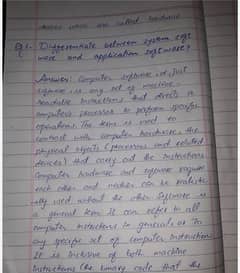 which are called hardware
Q1- Differentiate between system soft
ware and application software?
Answer: Computer software or just
software is any set of machine
readable instructions that directs a
computer's processor to perform specific
operations. The term is used to
contrast with computer hardware, the
physical objects (processor and related
devices) that carry out the instructions
Computer hardware and software require
each other and neither can be realistic
ally used without the other. Software is
a general term. It can refer to all
computer instructions in general or to
any specific set of computer instructions
It is inclusive of both machine
instructions (the binary code that the